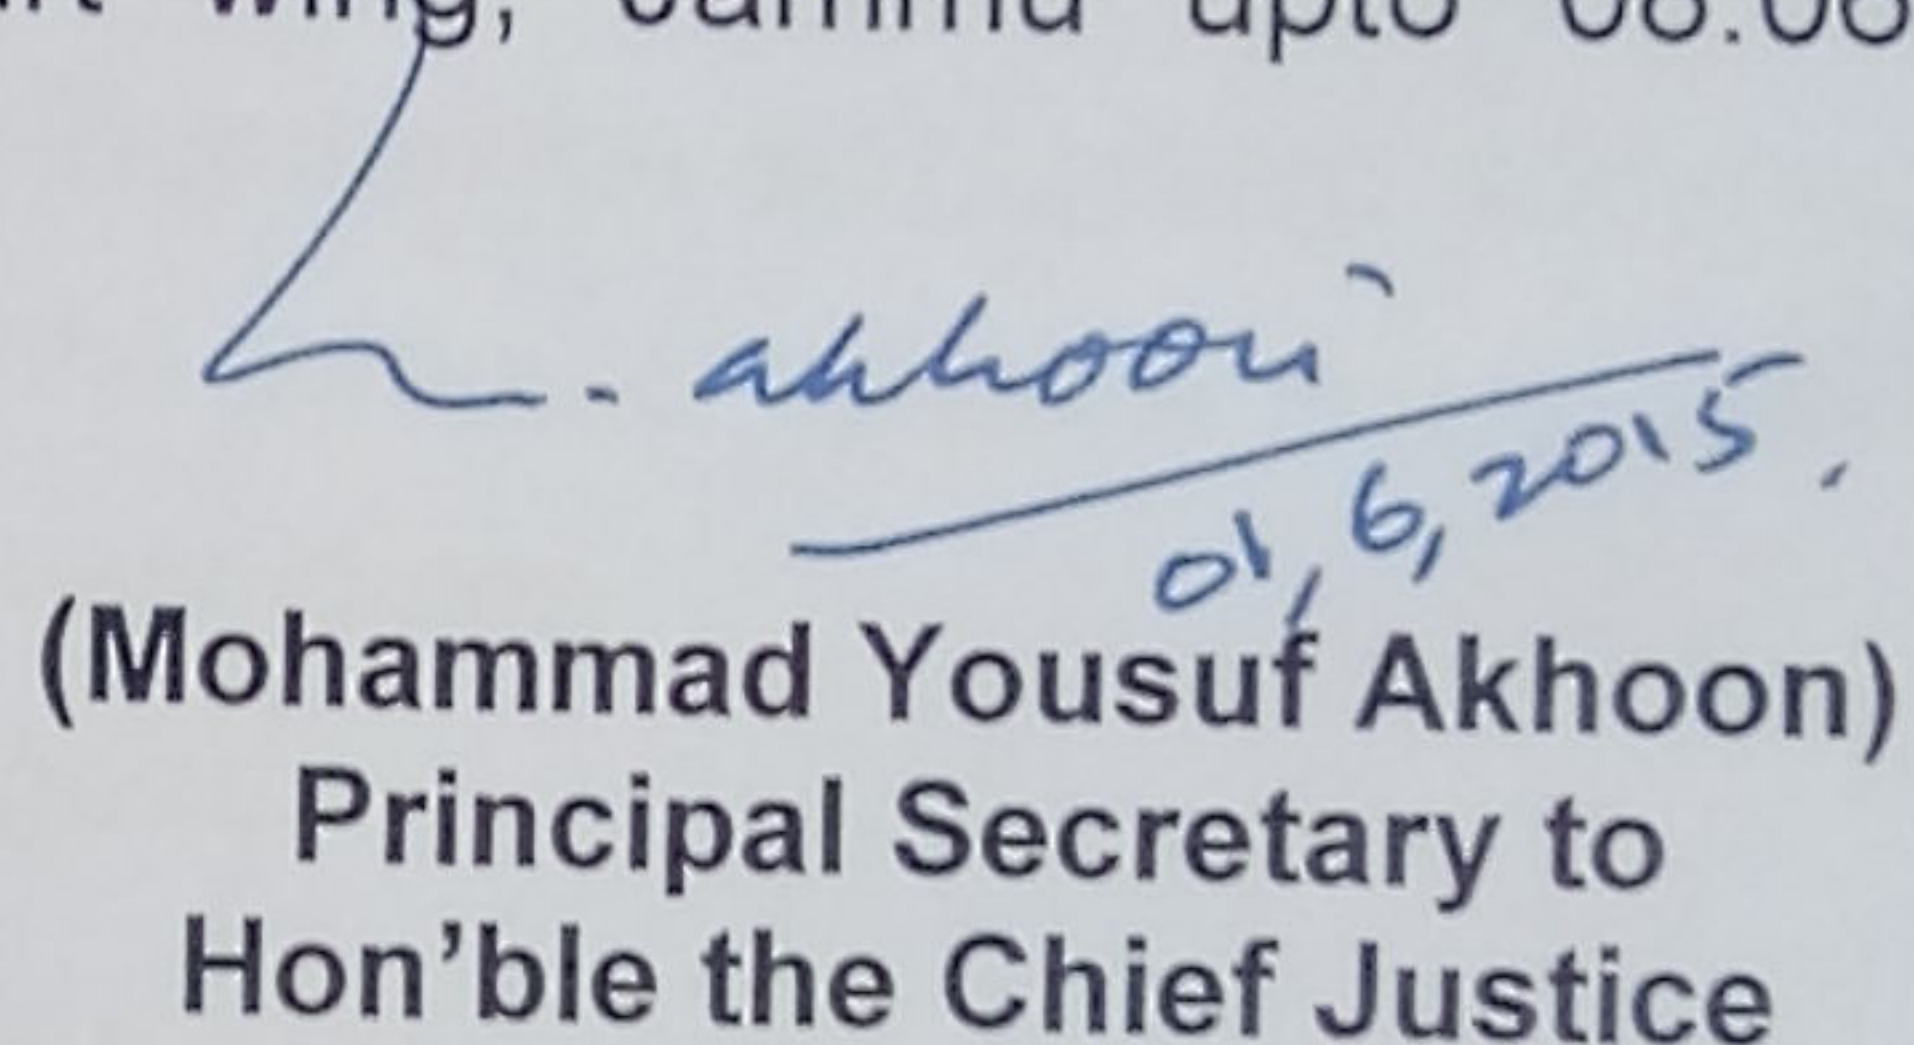 wing, Jammu upto 08.06
akhoon
01,6,2015.
(Mohammad Yousuf Akhoon)
Principal Secretary to
Hon'ble the Chief Justice